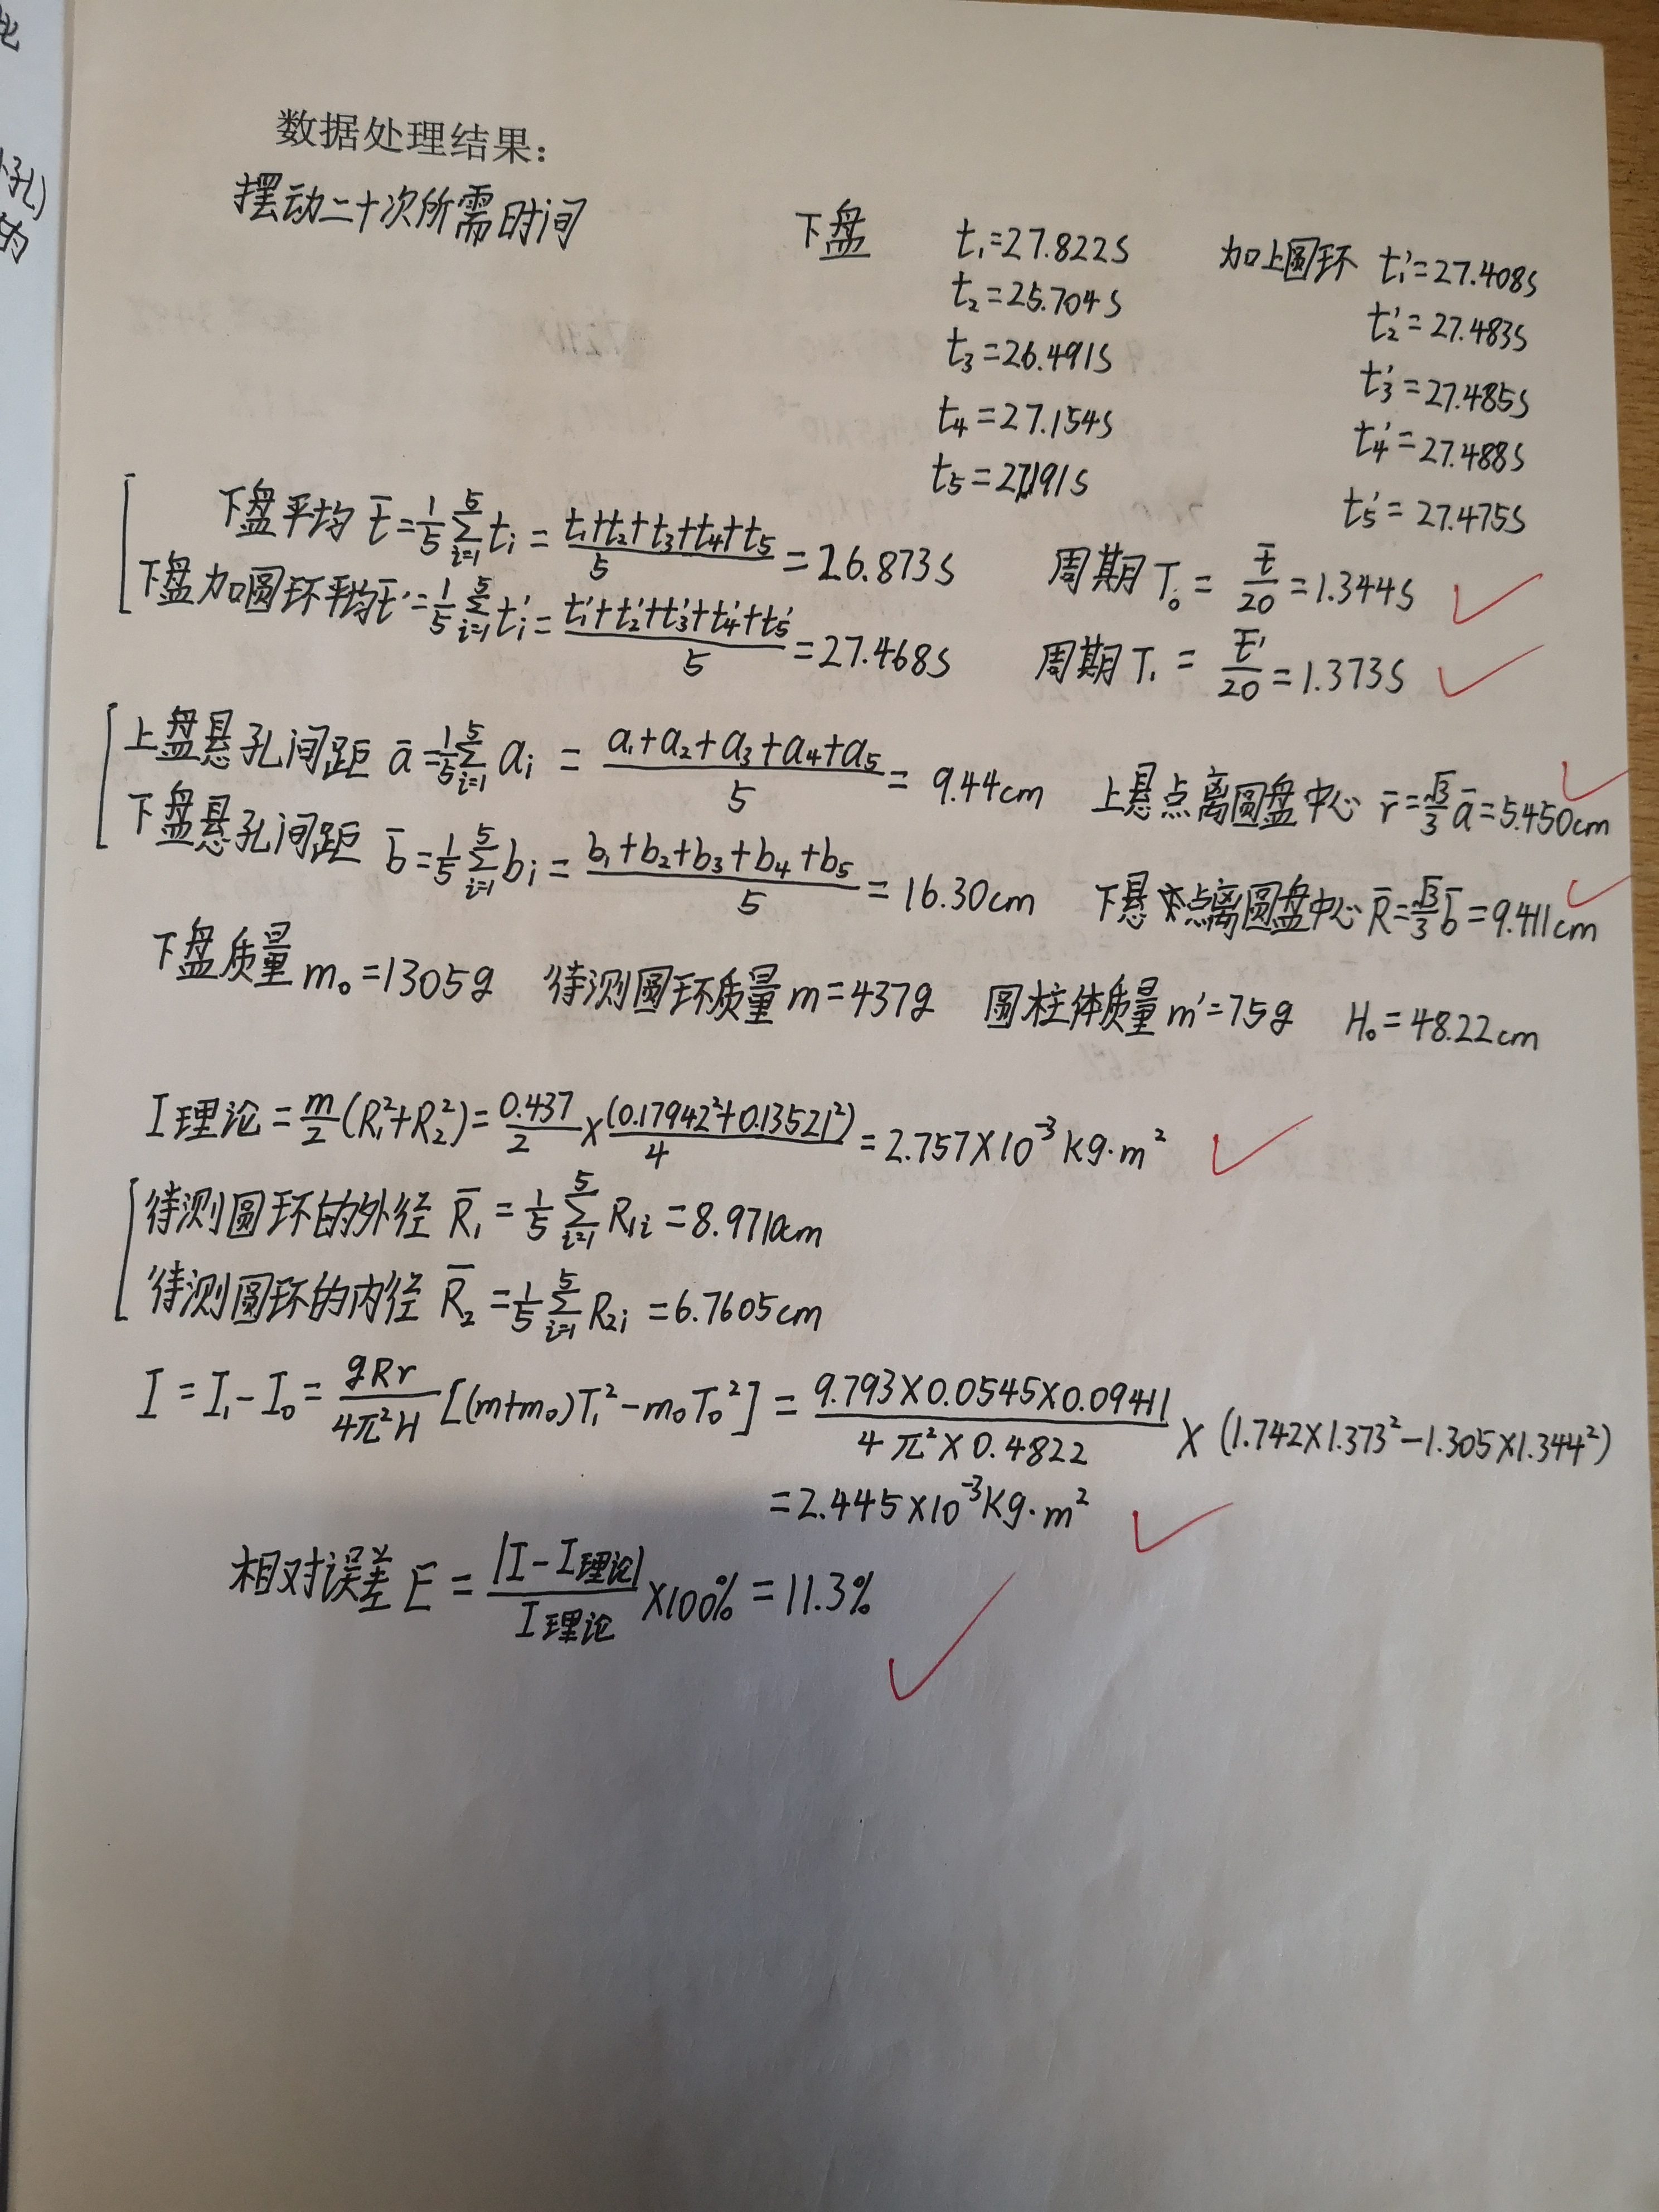 数据处理结果：
摆动二十次所需时间 下盘 t₁=27.822s 加上圆环 t₁'=27.408s
t₂=25.704s t₂'=27.483s
t₃=26.491s t₃'=27.485s
t₄=27.154s t₄'=27.488s
t₅=27.191s t₅'=27.475s
下盘平均 t̄=1/5 Σ(i=1→5) tᵢ = (t₁+t₂+t₃+t₄+t₅)/5 = 26.873s 周期T₀ = t̄/20 = 1.344s
下盘加圆环平均 t̄'=1/5 Σ(i=1→5) tᵢ' = (t₁'+t₂'+t₃'+t₄'+t₅')/5 = 27.468s 周期T₁ = t̄'/20 = 1.373s
上盘悬孔间距 ā=1/5 Σ(i=1→5) aᵢ = (a₁+a₂+a₃+a₄+a₅)/5 = 9.44cm 上悬点离圆盘中心 r̄=√3/3 ā=5.450cm
下盘悬孔间距 b̄=1/5 Σ(i=1→5) bᵢ = (b₁+b₂+b₃+b₄+b₅)/5 = 16.30cm 下悬点离圆盘中心 R̄=√3/3 b̄=9.411cm
下盘质量m₀=1305g 待测圆环质量m=437g 圆柱体质量m'=75g H₀=48.22cm
I理论 = m/2 (R₁²+R₂²) = 0.437/2 × (0.17942²+0.13521²)/4 = 2.757×10⁻³kg·m²
待测圆环的外径 R̄₁ = 1/5 Σ(i=1→5) R₁ᵢ = 8.9710cm
待测圆环的内径 R̄₂ = 1/5 Σ(i=1→5) R₂ᵢ = 6.7605cm
I = I₁-I₀ = gRr/4π²H [(m+m₀)T₁²-m₀T₀²] = (9.793×0.0545×0.09411)/(4π²×0.4822) × (1.742×1.373²-1.305×1.344²)
=2.445×10⁻³kg·m²
相对误差 E = |I-I理论|/I理论 ×100% = 11.3%